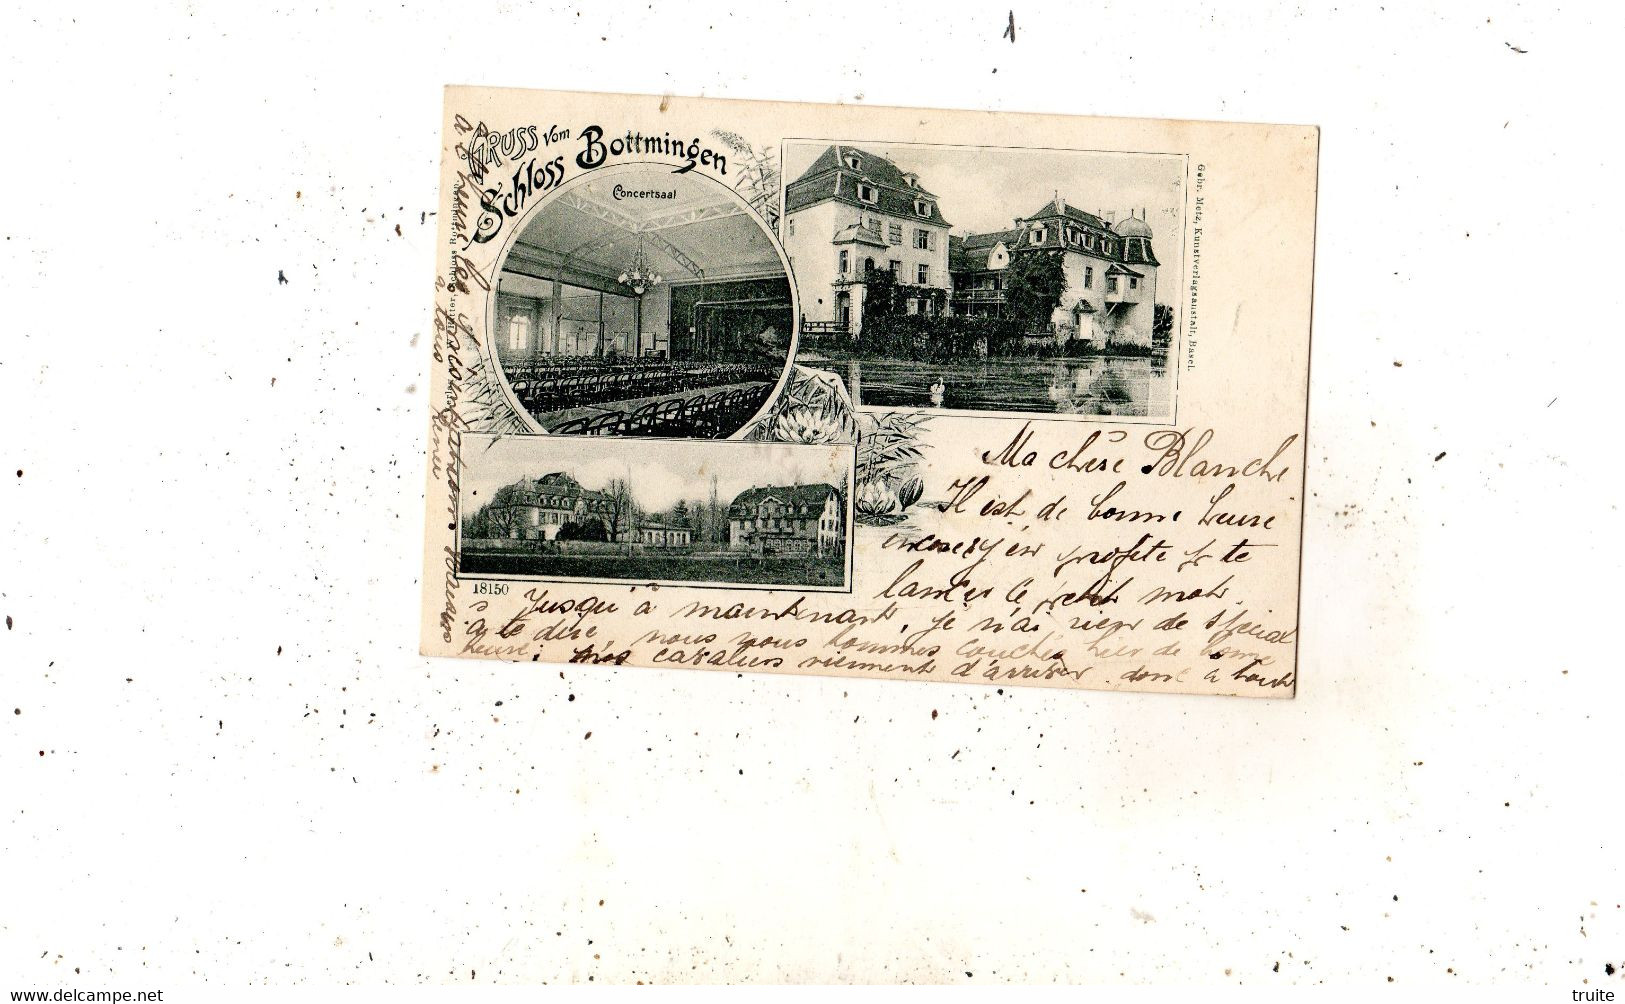 Gruss vom
Schloss Bottmingen
Concertsaal
Gebr. Metz, Kunstverlagsanstalt, Basel.
18150
Ma chère Blanche
Il est de bonne heure
encore j'en profite p te
lancer ce petit mot.
Jusqu'à maintenant, je n'ai rien de spécial
à te dire, nous nous sommes couchés hier de bonne
heure; mes cavaliers viennent d'arriver donc à tout
à l'heure les
a tous
www.delcampe.net
truite